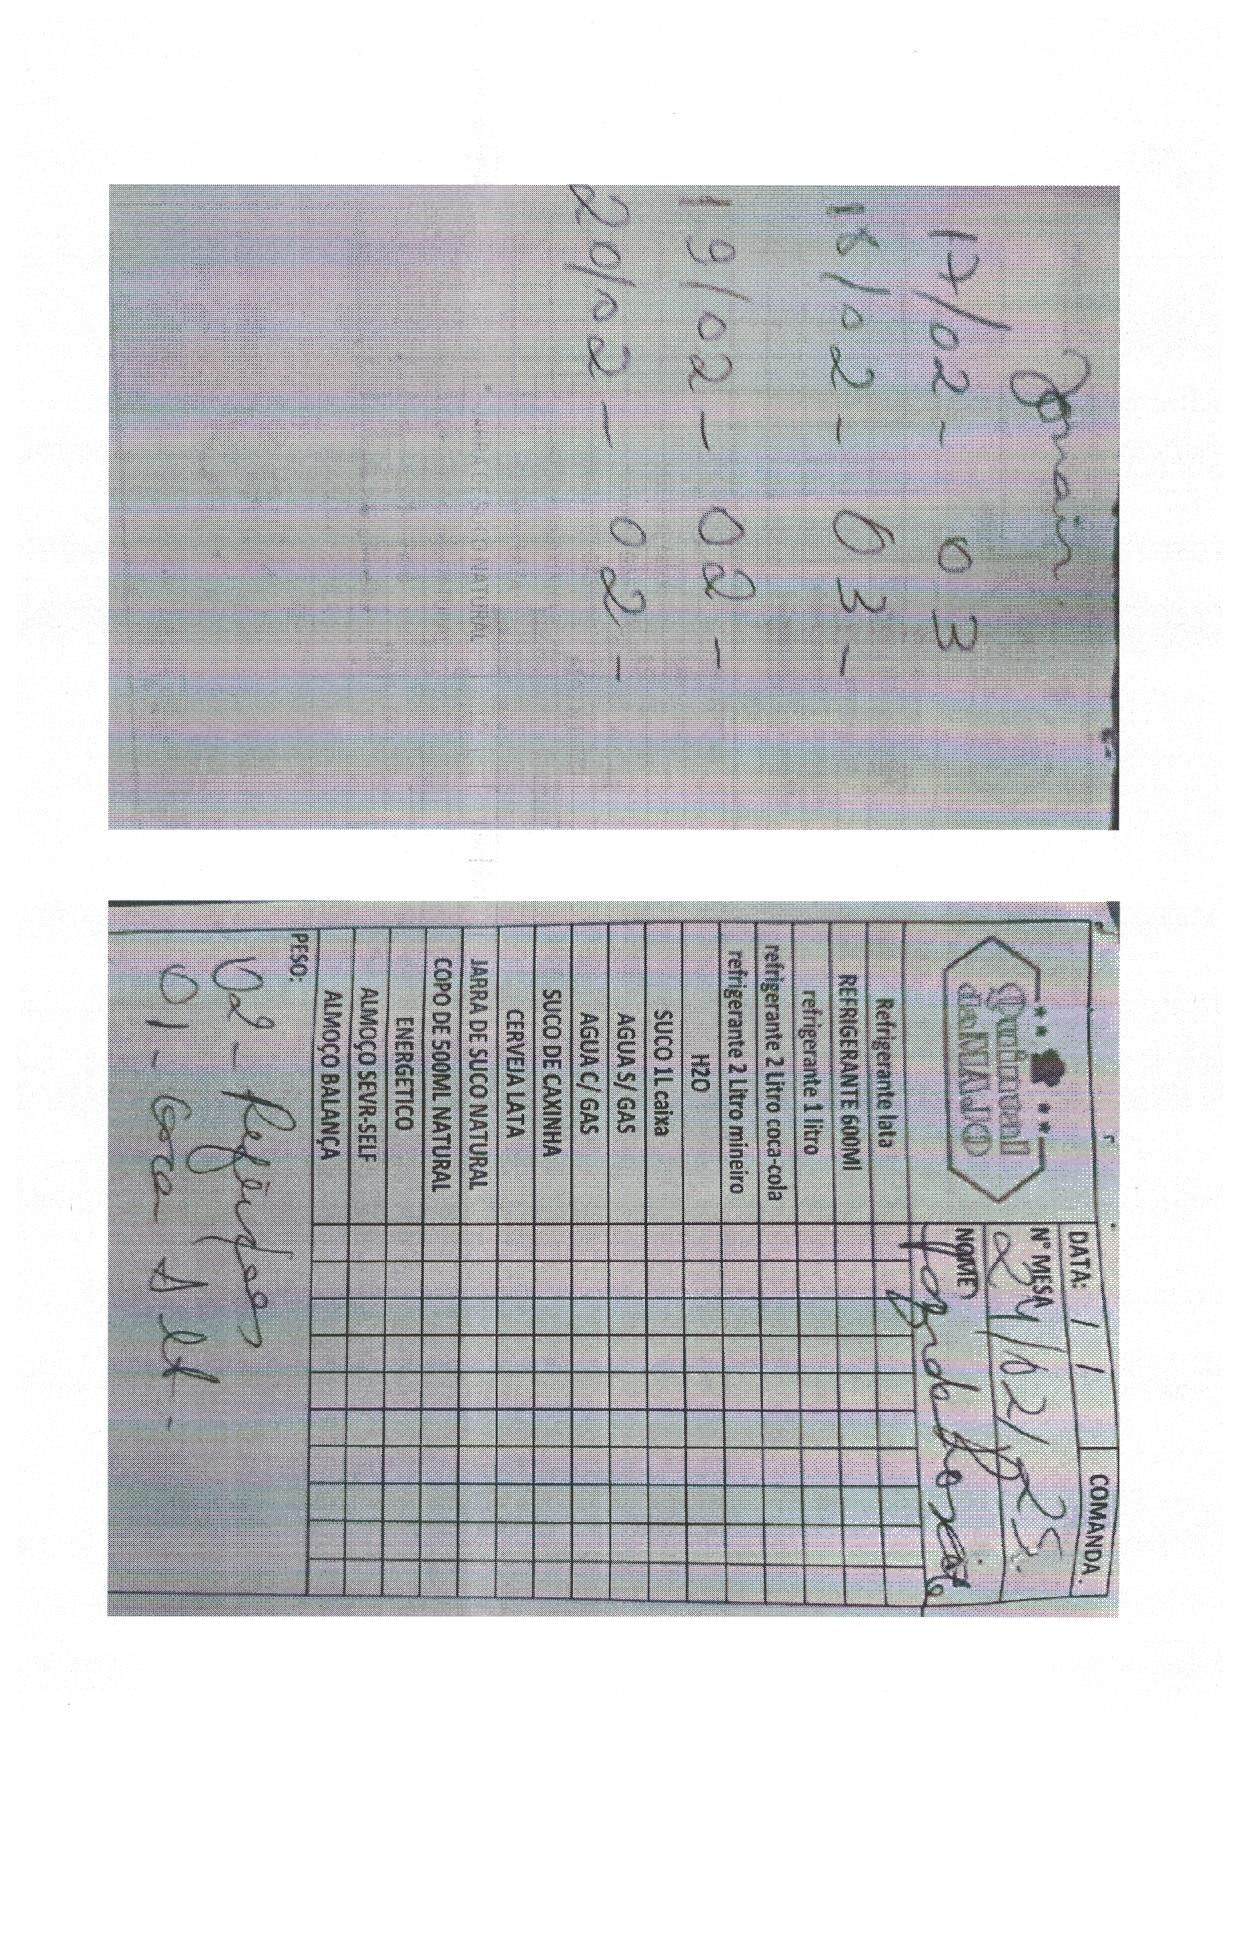 17/02 - 03
18/02 - 03 -
19/02 - 02 -
20/02 - 02 -
Quintual
da MAJO
DATA: / /
COMANDA
Nº MESA
21/02/025.
NOME
Refrigerante lata
REFRIGERANTE 600Ml
refrigerante 1 litro
refrigerante 2 Litro coca-cola
refrigerante 2 Litro mineiro
H2O
SUCO 1L caixa
AGUA S/ GAS
AGUA C/ GAS
SUCO DE CAXINHA
CERVEJA LATA
JARRA DE SUCO NATURAL
COPO DE 500ML NATURAL
ENERGETICO
ALMOÇO SEVR-SELF
ALMOÇO BALANÇA
PESO:
02 - Refeições
01 - Coca 1 lt -